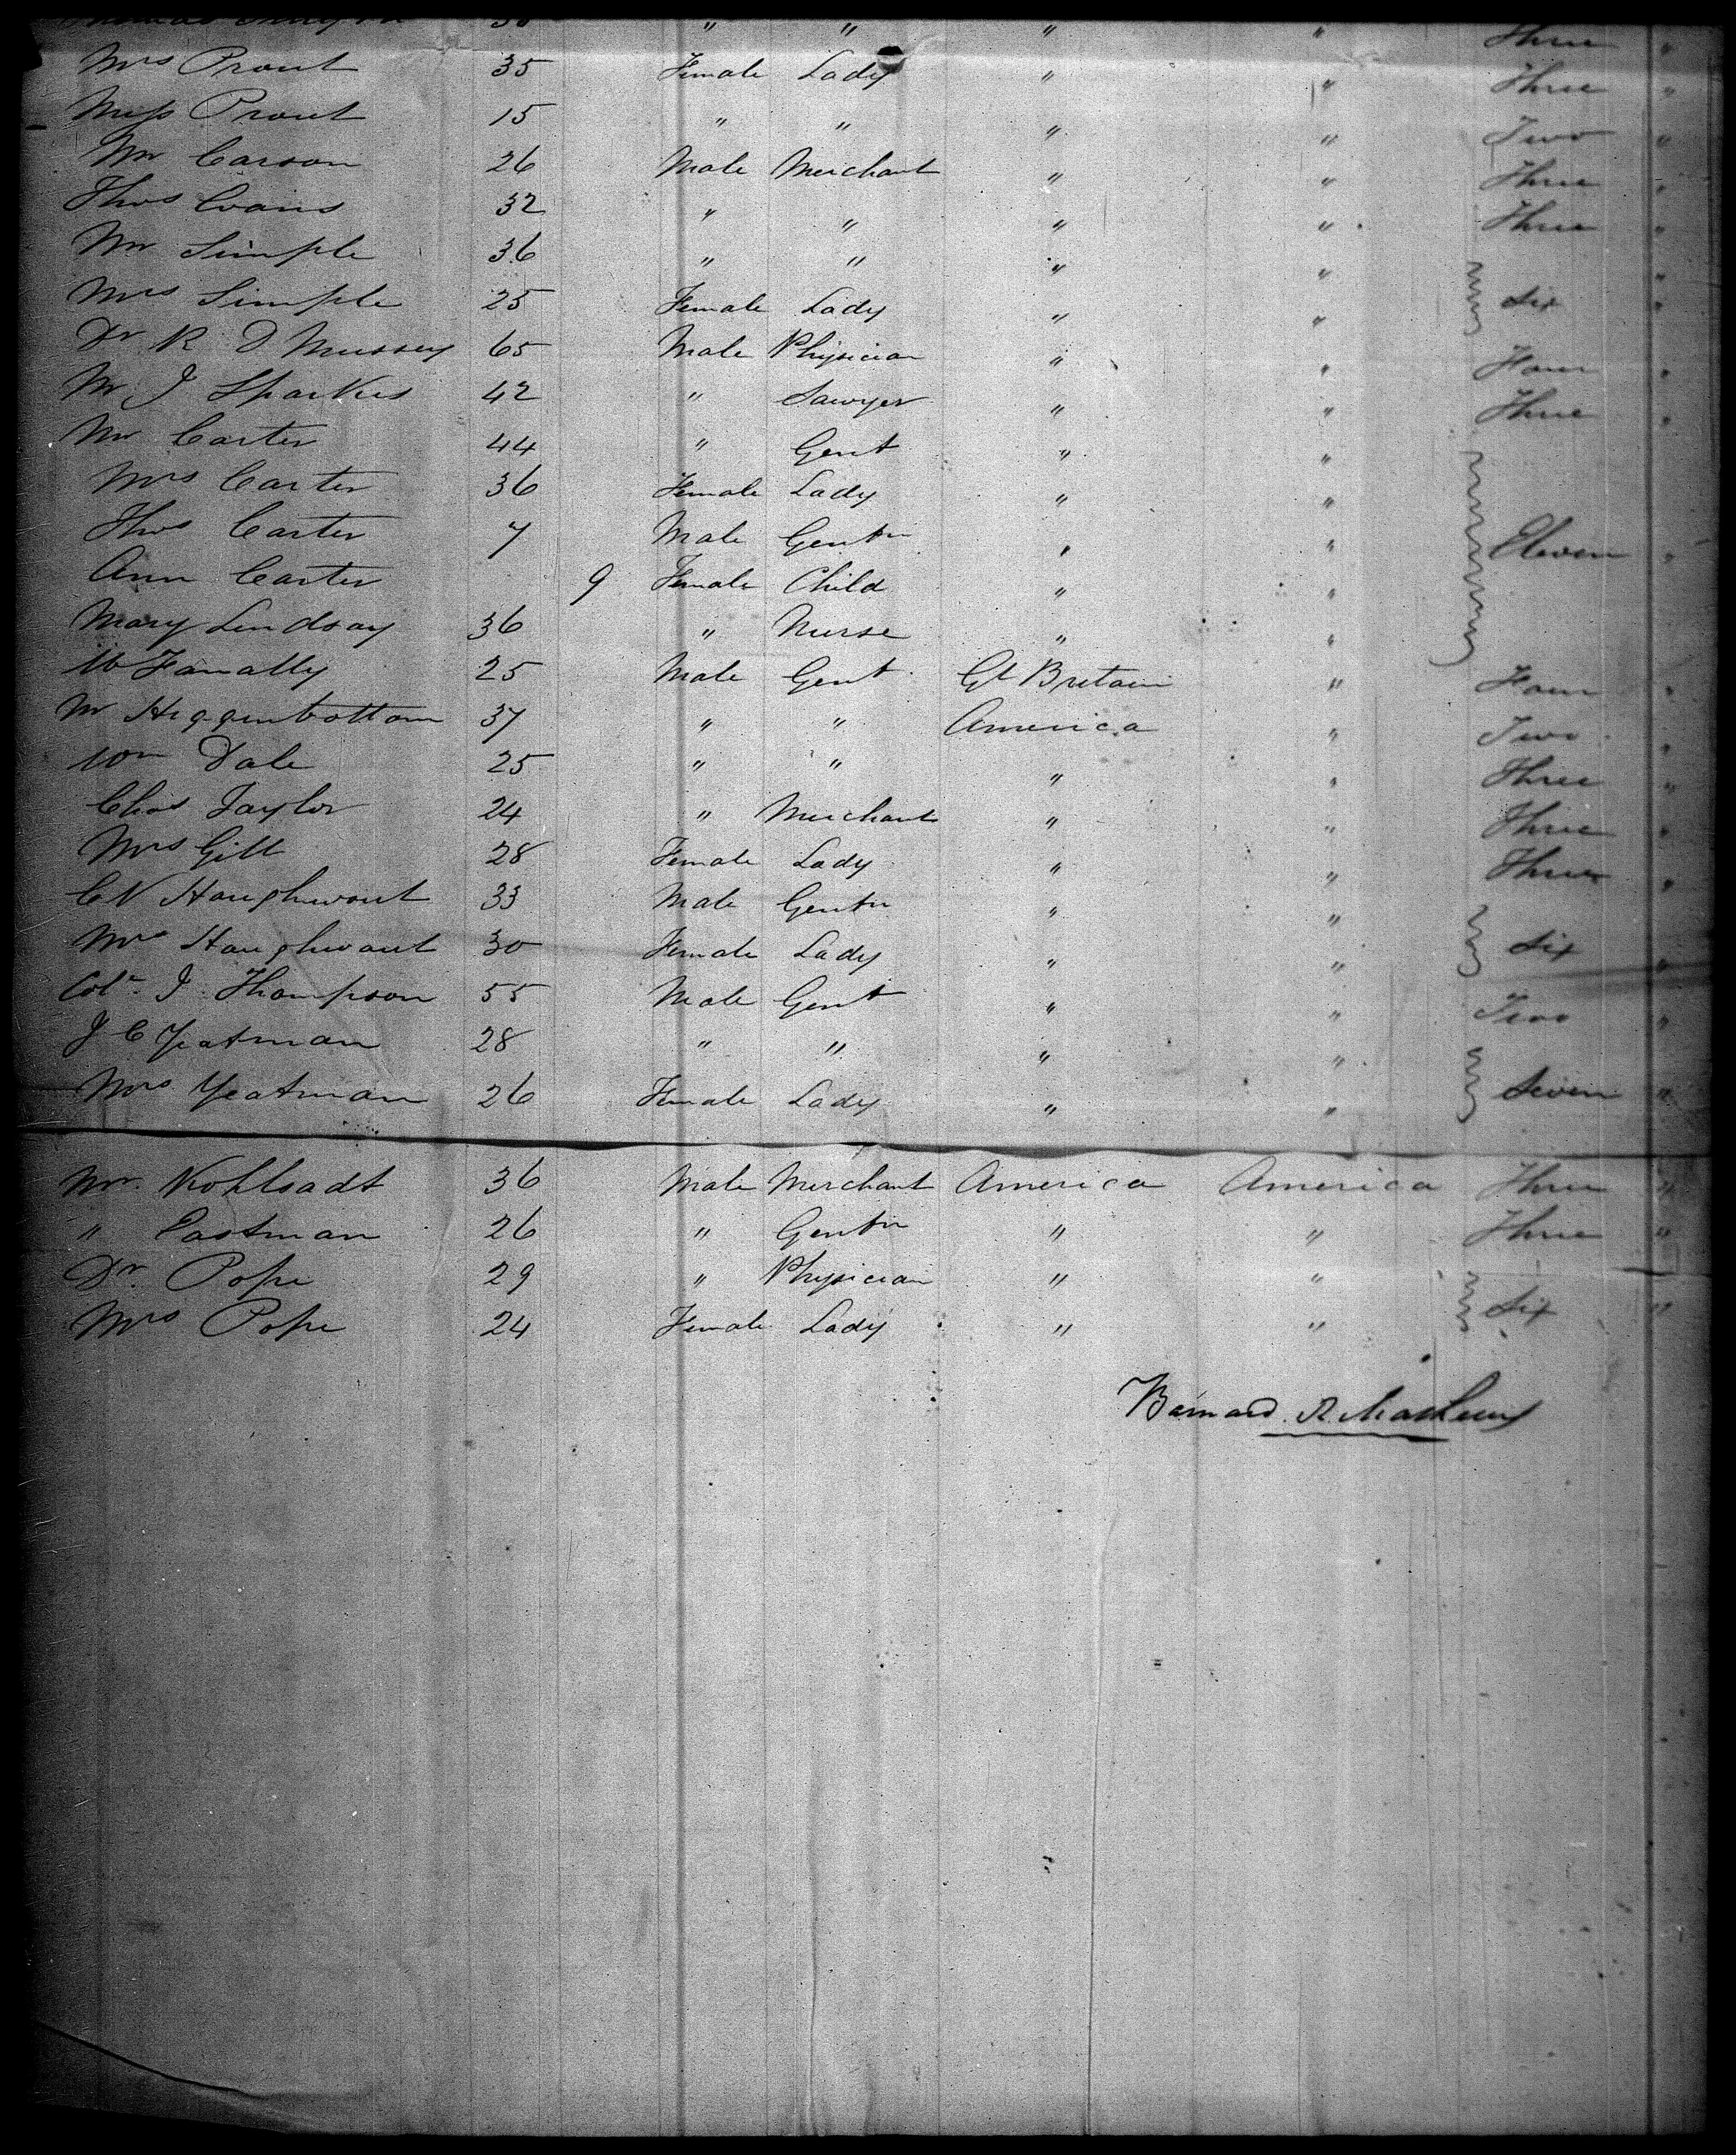 36 " " " " Three "
Mrs Prout 35 Female Lady " " Three "
Miss Prout 15 " " " " Two "
Mr Carson 26 Male Merchant " " Three "
Thos Evans 32 " " " " Three "
Mr Simple 36 " " " " "
Mrs Simple 25 Female Lady " " Six "
Dr R D Mussey 65 Male Physician " " Four "
Mr J Sparkes 42 " Sawyer " " Three "
Mr Carter 44 " Gent " "
Mrs Carter 36 Female Lady " "
Thos Carter 7 Male Gentn " " Eleven "
Ann Carter 9 Female Child " "
Mary Lindsay 36 " Nurse " "
W Fanally 25 Male Gent Gt Britain " Four "
Mr Higgenbottom 37 " " America " Two "
Wm Dale 25 " " " " Three "
Chas Taylor 24 " Merchant " " Three "
Mrs Gill 28 Female Lady " " Three "
C V Haughwout 33 Male Gentn " "
Mrs Haughwout 30 Female Lady " " Six "
Col. J Thompson 55 Male Gent " " Two "
J C Yeatman 28 " " " "
Mrs Yeatman 26 Female Lady " " Seven "
Mr. Kohlsadt 36 Male Merchant America America Three "
" Eastman 26 " Gentn " " Three "
Dr. Pope 29 " Physician " "
Mrs Pope 24 Female Lady " " Six "
Barnard R Mathews